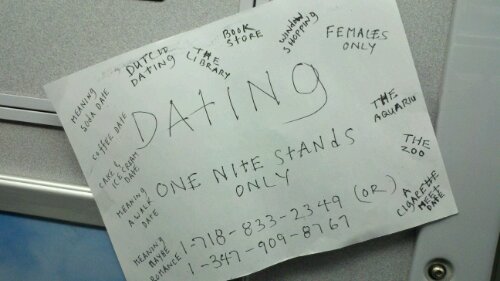 MEANING
SODA DATE
DUTCH
DATING
THE
LIBRARY
BOOK
STORE
WINDOW
SHOPPING
FEMALES
ONLY
COFFEE DATE
DATING
THE
AQUARIUM
CAKE &
ICE CREAM
DATE
ONE NITE STANDS
ONLY
THE
ZOO
MEANING
A WALK
DATE
1-718-833-2349 (OR)
1-347-909-8767
A
CIGARETTE
MEET
DATE
MEANING
MAYBE
ROMANCE